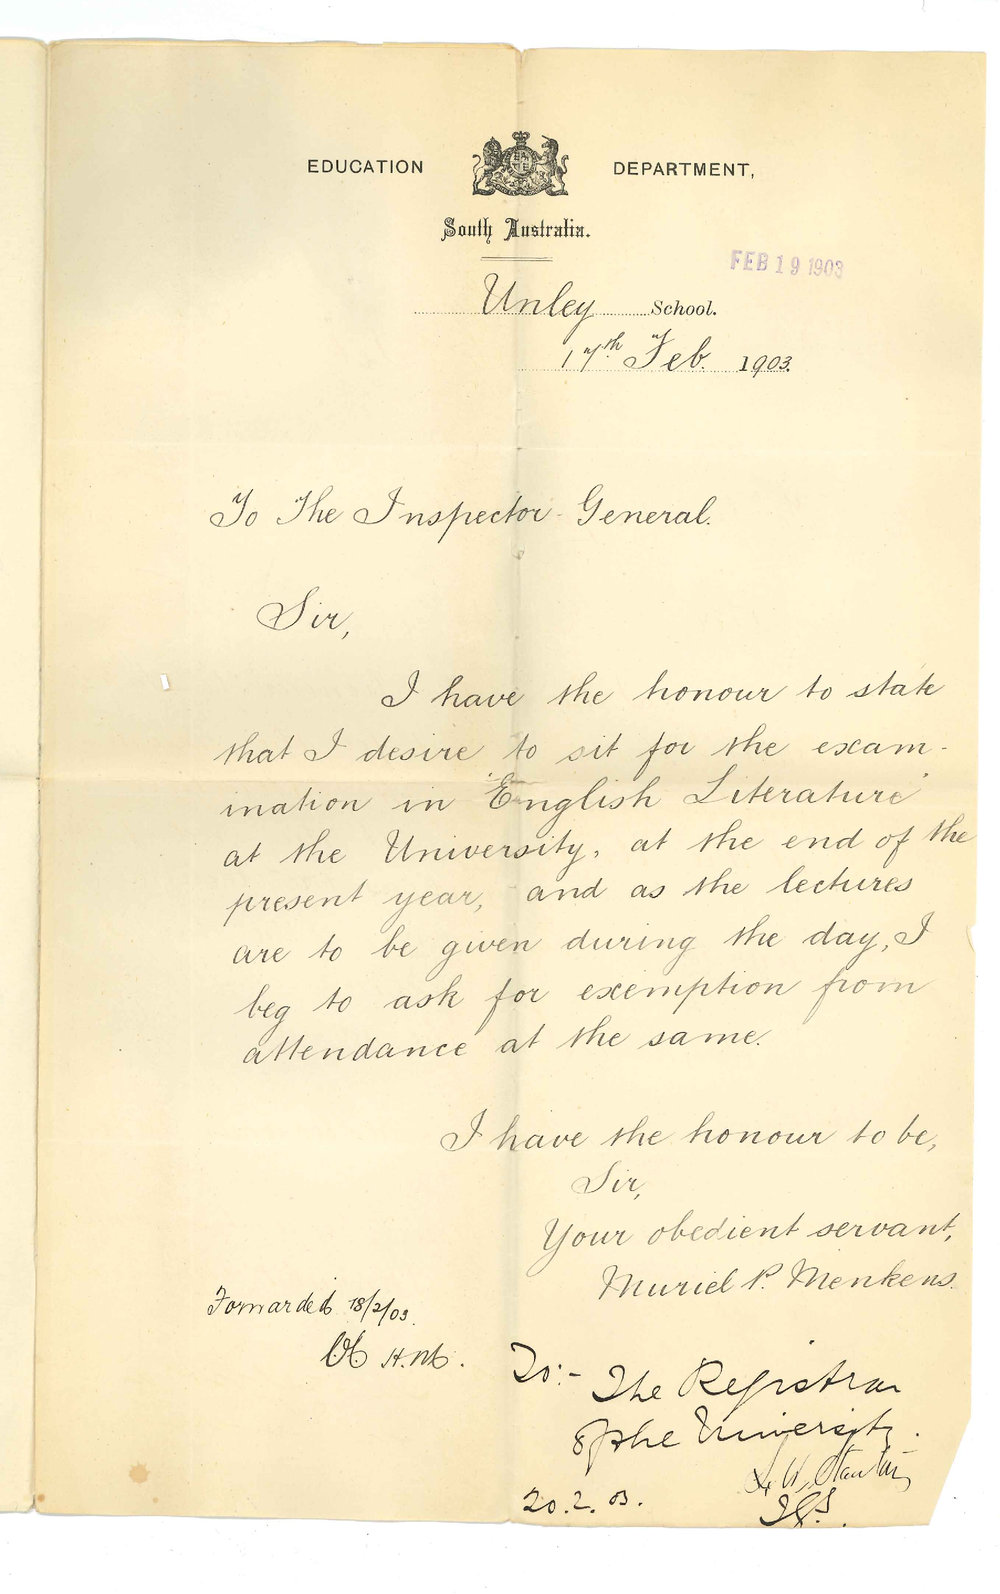 EDUCATION DEPARTMENT,
South Australia.
FEB 19 1903
Unley School.
17th Feb. 1903.
To The Inspector-General.
Sir,
I have the honour to state
that I desire to sit for the exam-
ination in "English Literature"
at the University, at the end of the
present year, and as the lectures
are to be given during the day, I
beg to ask for exemption from
attendance at the same.
I have the honour to be,
Sir,
Your obedient servant,
Muriel P. Menkens.
Forwarded 18/2/03.
H.M.
To:- The Registrar
of the University.
Stanton
20.2.03.